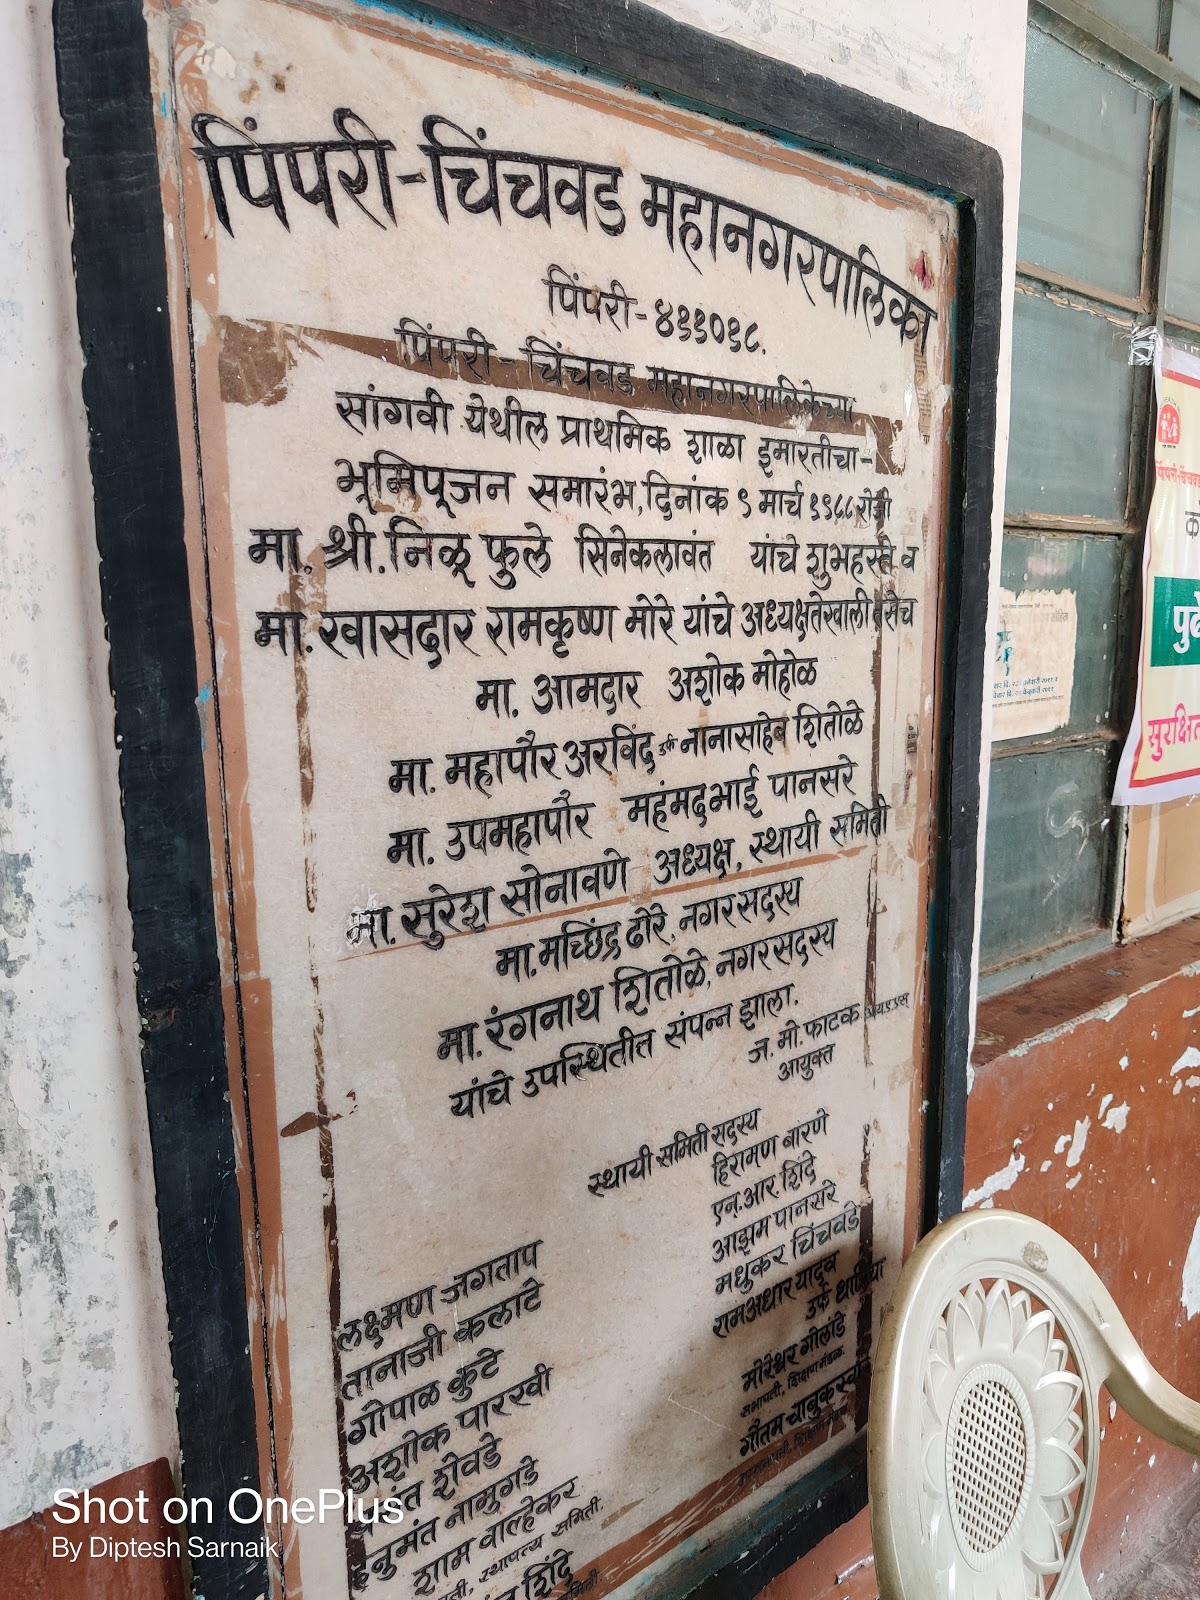 पिंपरी-चिंचवड महानगरपालिका
पिंपरी-४११०१८.
पिंपरी-चिंचवड महानगरपालिकेच्या
सांगवी येथील प्राथमिक शाळा इमारतीचा-
भूमिपूजन समारंभ, दिनांक ९ मार्च १९८८ रोजी
मा. श्री. निळू फुले सिनेकलावंत यांचे शुभहस्ते व
मा. खासदार रामकृष्ण मोरे यांचे अध्यक्षतेखाली तसेच
मा. आमदार अशोक मोहोळ
मा. महापौर अरविंद उर्फ नानासाहेब शितोळे
मा. उपमहापौर महंमदभाई पानसरे
मा. सुरेश सोनावणे अध्यक्ष, स्थायी समिती
मा. मच्छिंद्र ढोरे, नगरसदस्य
मा. रंगनाथ शितोळे, नगरसदस्य
यांचे उपस्थितीत संपन्न झाला.
ज. मो. फाटक आय.ए.एस्
आयुक्त
स्थायी समिती सदस्य
लक्ष्मण जगताप
तानाजी कलाटे
गोपाळ कुटे
अशोक पारखी
शेवडे
हनुमंत नामुगडे
शाम वाल्हेकर
स्थापत्य समिती.
शिंदे
हिरामण बारणे
एन्. आर. शिंदे
आझम पानसरे
मधुकर चिंचवडे
रामअधार यादव
उर्फ
मोरेश्वर गोलांडे
सभापती, शिक्षण मंडळ
गौतम चाबुकस्वार
पुढे
सुरक्षित
Shot on OnePlus
By Diptesh Sarnaik